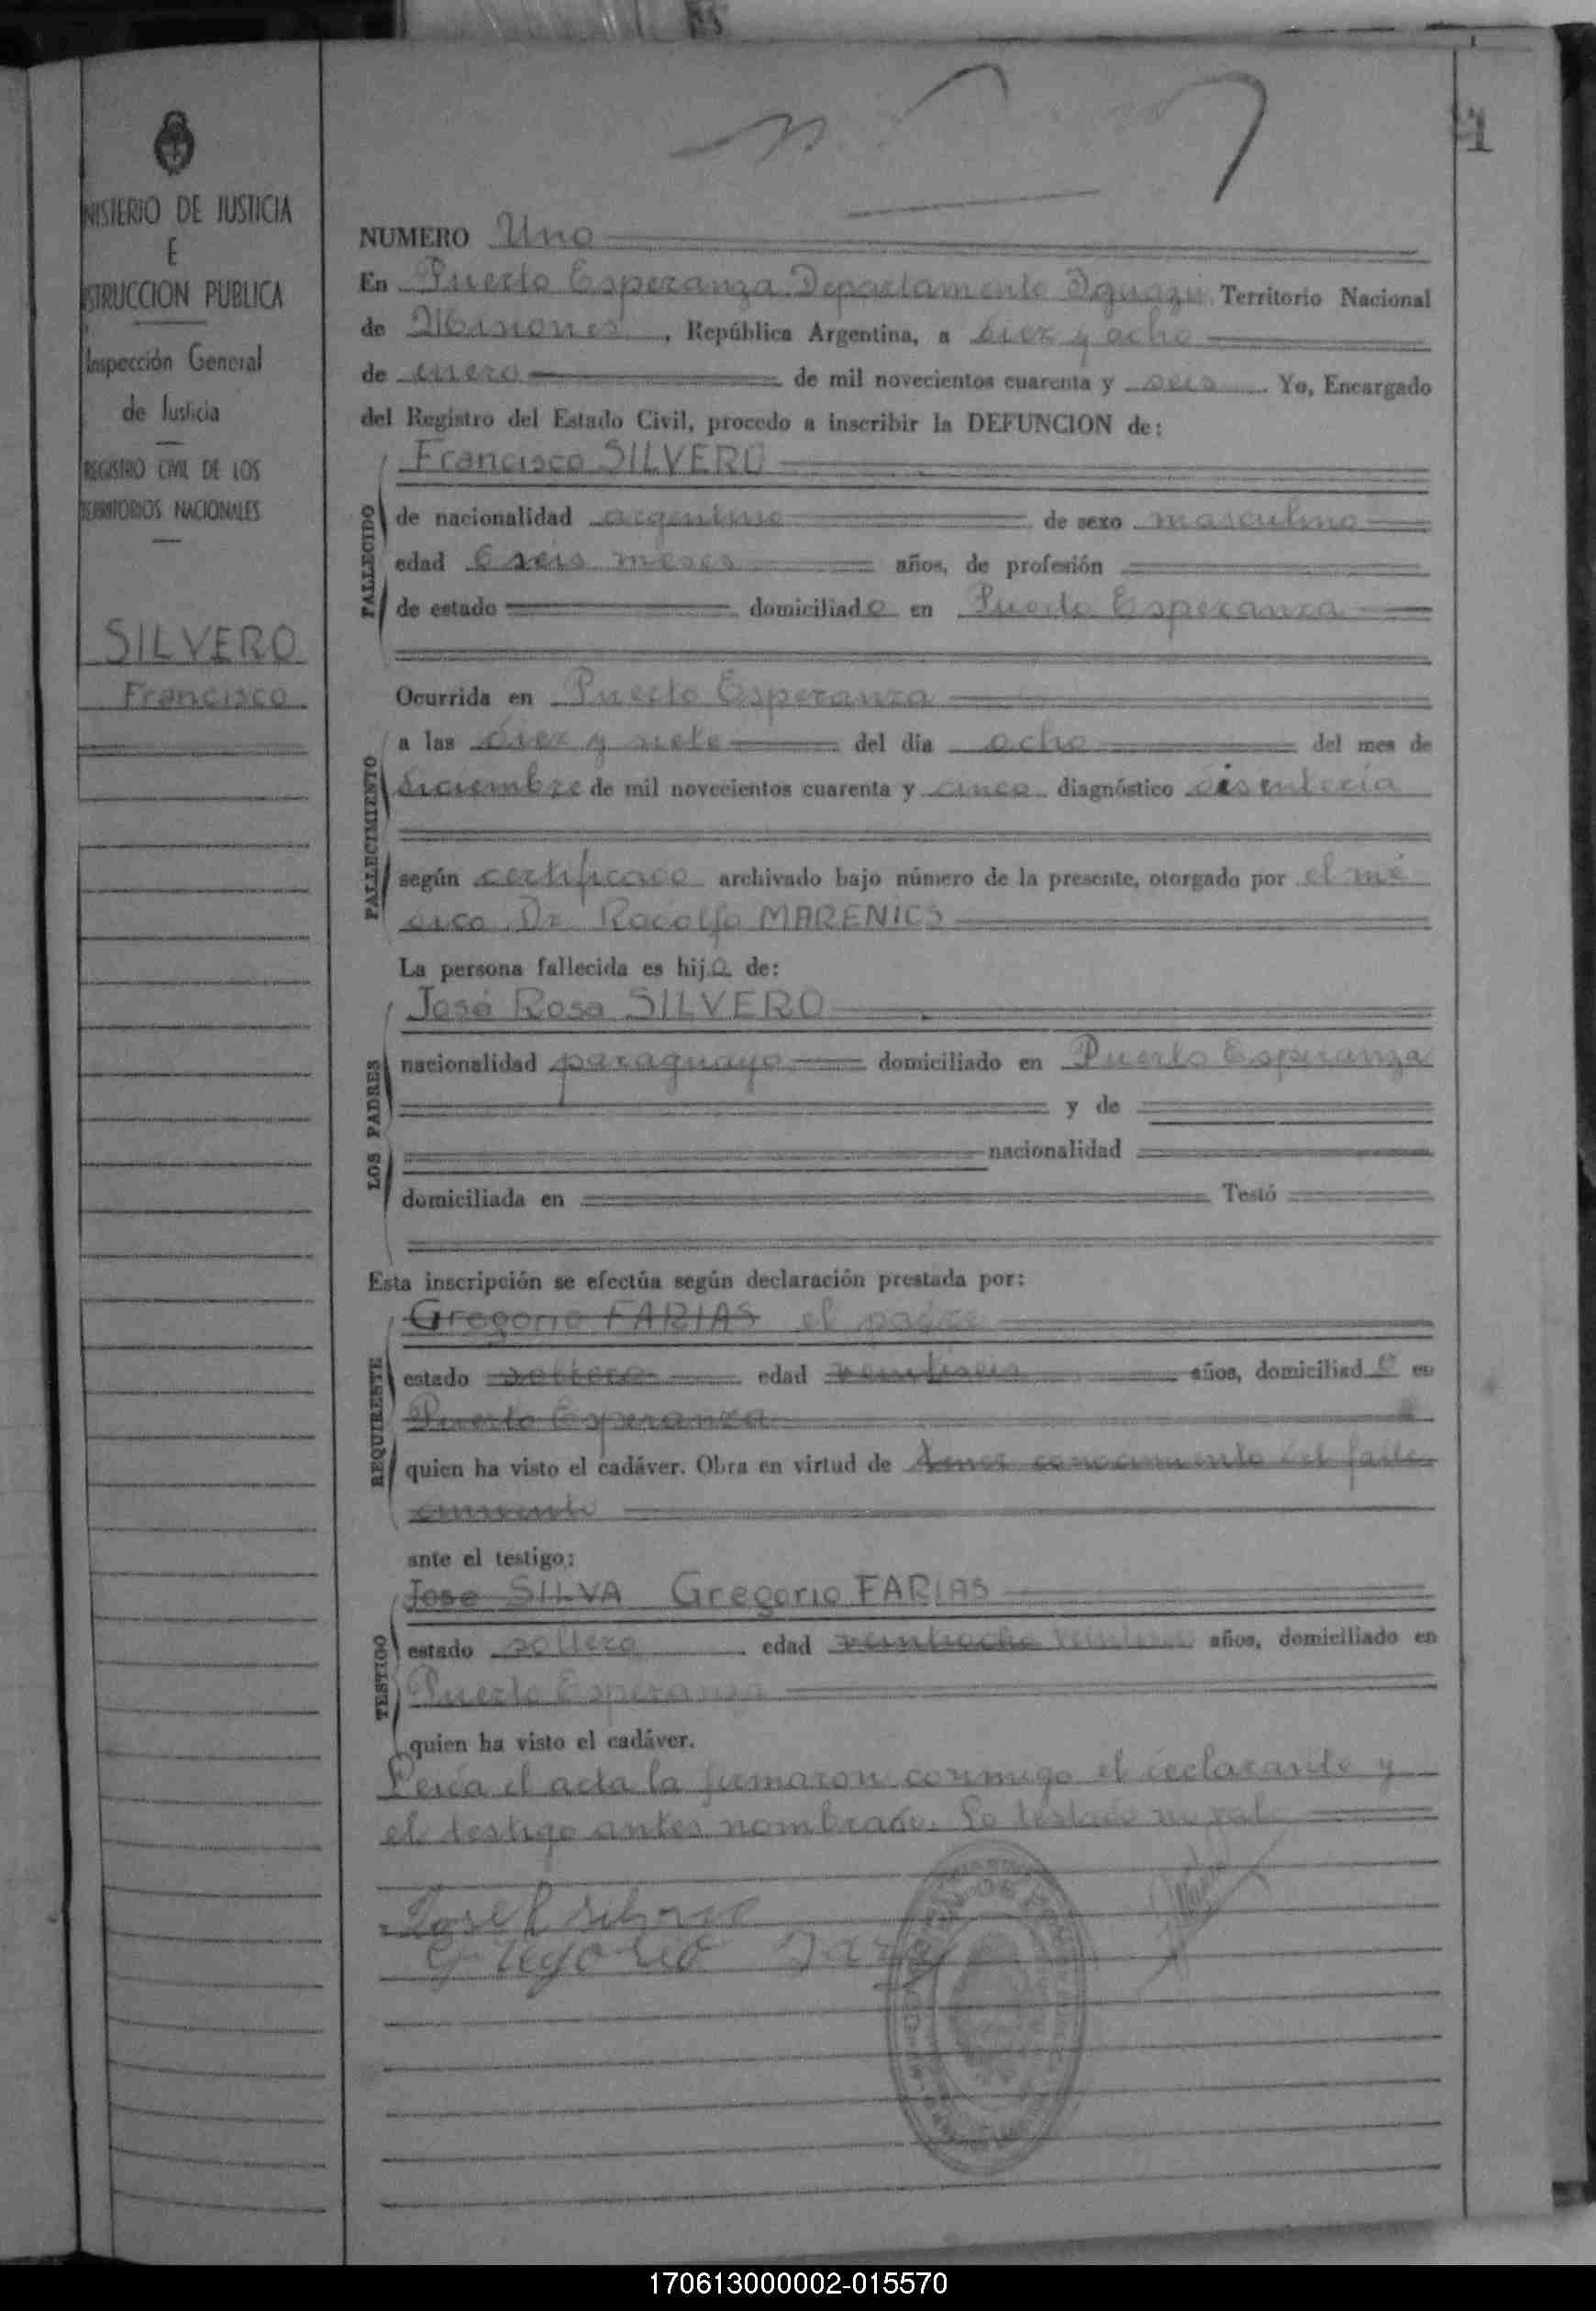 1
NISTERIO DE JUSTICIA
E
STRUCCION PUBLICA
Inspección General
de Justicia
REGISTRO CIVIL DE LOS
TERRITORIOS NACIONALES
SILVERO
Francisco
NUMERO Uno
En Puerto Esperanza Departamento Iguazú Territorio Nacional
de Misiones, República Argentina, a diez y ocho
de enero de mil novecientos cuarenta y seis. Yo, Encargado
del Registro del Estado Civil, procedo a inscribir la DEFUNCION de:
FALLECIDO
Francisco SILVERO
de nacionalidad argentino de sexo masculino
edad 6 seis meses años, de profesión
de estado domiciliado en Puerto Esperanza
FALLECIMIENTO
Ocurrida en Puerto Esperanza
a las diez y siete del día ocho del mes de
diciembre de mil novecientos cuarenta y cinco diagnóstico disentería
según certificado archivado bajo número de la presente, otorgado por el mé
dico Dr. Rodolfo MARENICS
La persona fallecida es hijo de:
LOS PADRES
José Rosa SILVERO
nacionalidad paraguayo domiciliado en Puerto Esperanza
y de
nacionalidad
domiciliada en Testó
Esta inscripción se efectúa según declaración prestada por:
REQUIRENTE
Gregorio FARIAS el padre
estado soltero edad veintiseis años, domiciliado en
Puerto Esperanza
quien ha visto el cadáver. Obra en virtud de tener conocimiento del falle
cimiento
ante el testigo:
TESTIGO
Jose SILVA Gregorio FARIAS
estado soltero edad veintiocho años, domiciliado en
Puerto Esperanza
quien ha visto el cadáver.
Leída el acta la firmaron conmigo el declarante y
el testigo antes nombrado. Lo testado no vale
Jose R Silvero
Gregorio
170613000002-015570